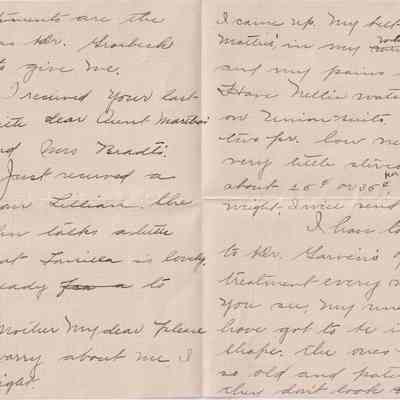 are the
Dr. Groesbeck
to give me.
I received your last
dear Aunt Martha's
nd Mrs Bradts.
Just received a
Lillian. She
talks a little
is lovely.
eady to
Mother My dear please
worry about me I
right.
I came up. My
Mattie's, in my
and my pains
Have Nellie
on Union suits.
two pr. low ne
very little
about 25¢ or 35¢ per
weight. I will send
I have to
to Dr.
treatment every
You see, my
have got to be i
shape. The ones
so old and
they don't look